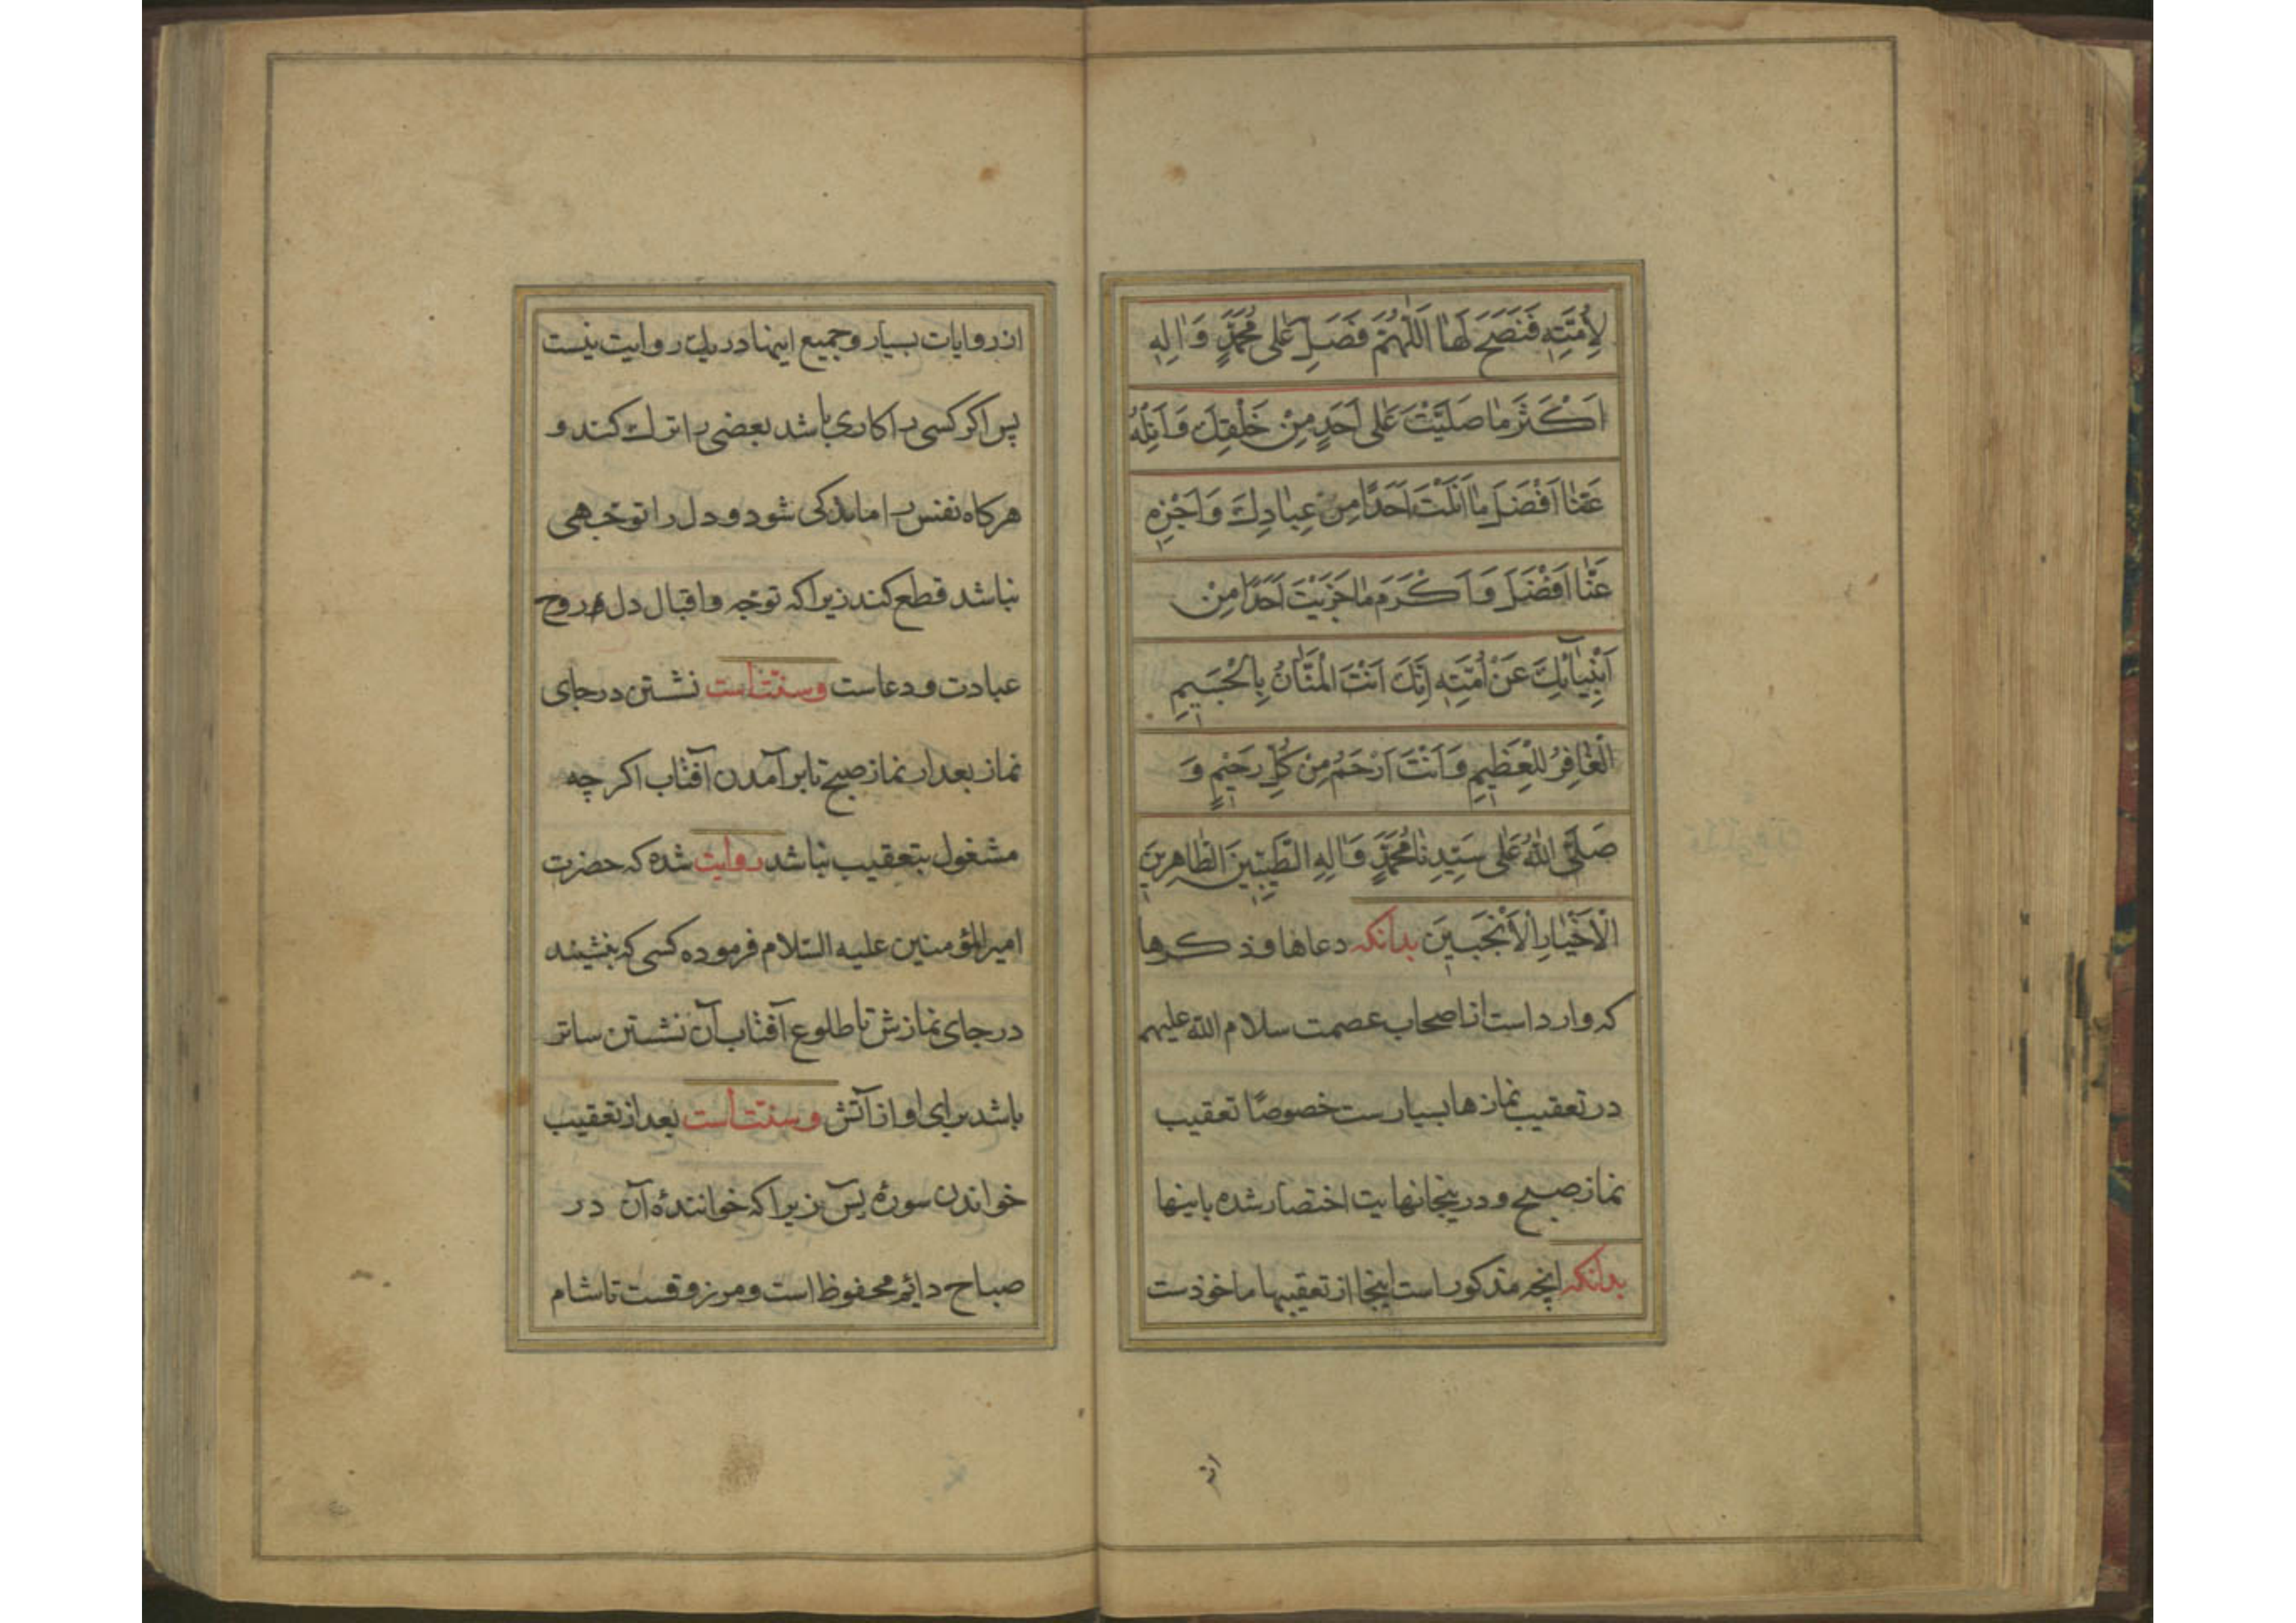 لِاُمَّتِهِ فَنَصَحَ لَهَا اَللّٰهُمَّ فَصَلِّ عَلٰى مُحَمَّدٍ وَاٰلِهِ
اَكْثَرَ مَا صَلَّيْتَ عَلٰى اَحَدٍ مِنْ خَلْقِكَ وَاَنِلْهُ
عَنَّا اَفْضَلَ مَا اَنَلْتَ اَحَدًا مِنْ عِبَادِكَ وَاَجْزِهِ
عَنَّا اَفْضَلَ وَاَكْرَمَ مَا جَزَيْتَ اَحَدًا مِنْ
اَنْبِيَآئِكَ عَنْ اُمَّتِهِ اِنَّكَ اَنْتَ الْمَنَّانُ بِالْجَسِيمِ
الْغَافِرُ لِلْعَظِيمِ وَاَنْتَ اَرْحَمُ مِنْ كُلِّ رَحِيمٍ وَ
صَلَّى اللّٰهُ عَلٰى سَيِّدِنَا مُحَمَّدٍ وَاٰلِهِ الطَّيِّبِينَ الطَّاهِرِينَ
الْاَخْيَارِ الْاَنْجَبِينَ بدانکه دعاها و ذکرها
که وارد است از اصحاب عصمت سلام الله علیهم
در تعقیب نمازها بسیارست خصوصًا تعقیب
نماز صبح و درینجا نهایت اختصار شده باینها
بدانکه انچه مذکور است اینجا از تعقیبها ماخوذست
از
از روایات بسیار و جمیع اینها در یك روایت نیست
پس اکر کسی را کاری باشد بعضی را ترك کند و
هرکاه نفس را ماندکی شود و دل را توجهی
نباشد قطع کند زیرا که توجه و اقبال دل روح
عبادت و دعاست و سنّت است نشستن در جای
نماز بعد از نماز صبح تا برآمدن آفتاب اکر چه
مشغول بتعقیب نباشد روایت شده که حضرت
امیرالمؤمنین علیه السّلام فرموده کسی که بنشیند
در جای نمازش تا طلوع آفتاب آن نشستن ساتر
باشد برای او از آتش و سنّت است بعد از تعقیب
خواندن سورۀ یس زیرا که خوانندۀ آن در
صباح دایم محفوظ است و مرزوقست تا شام